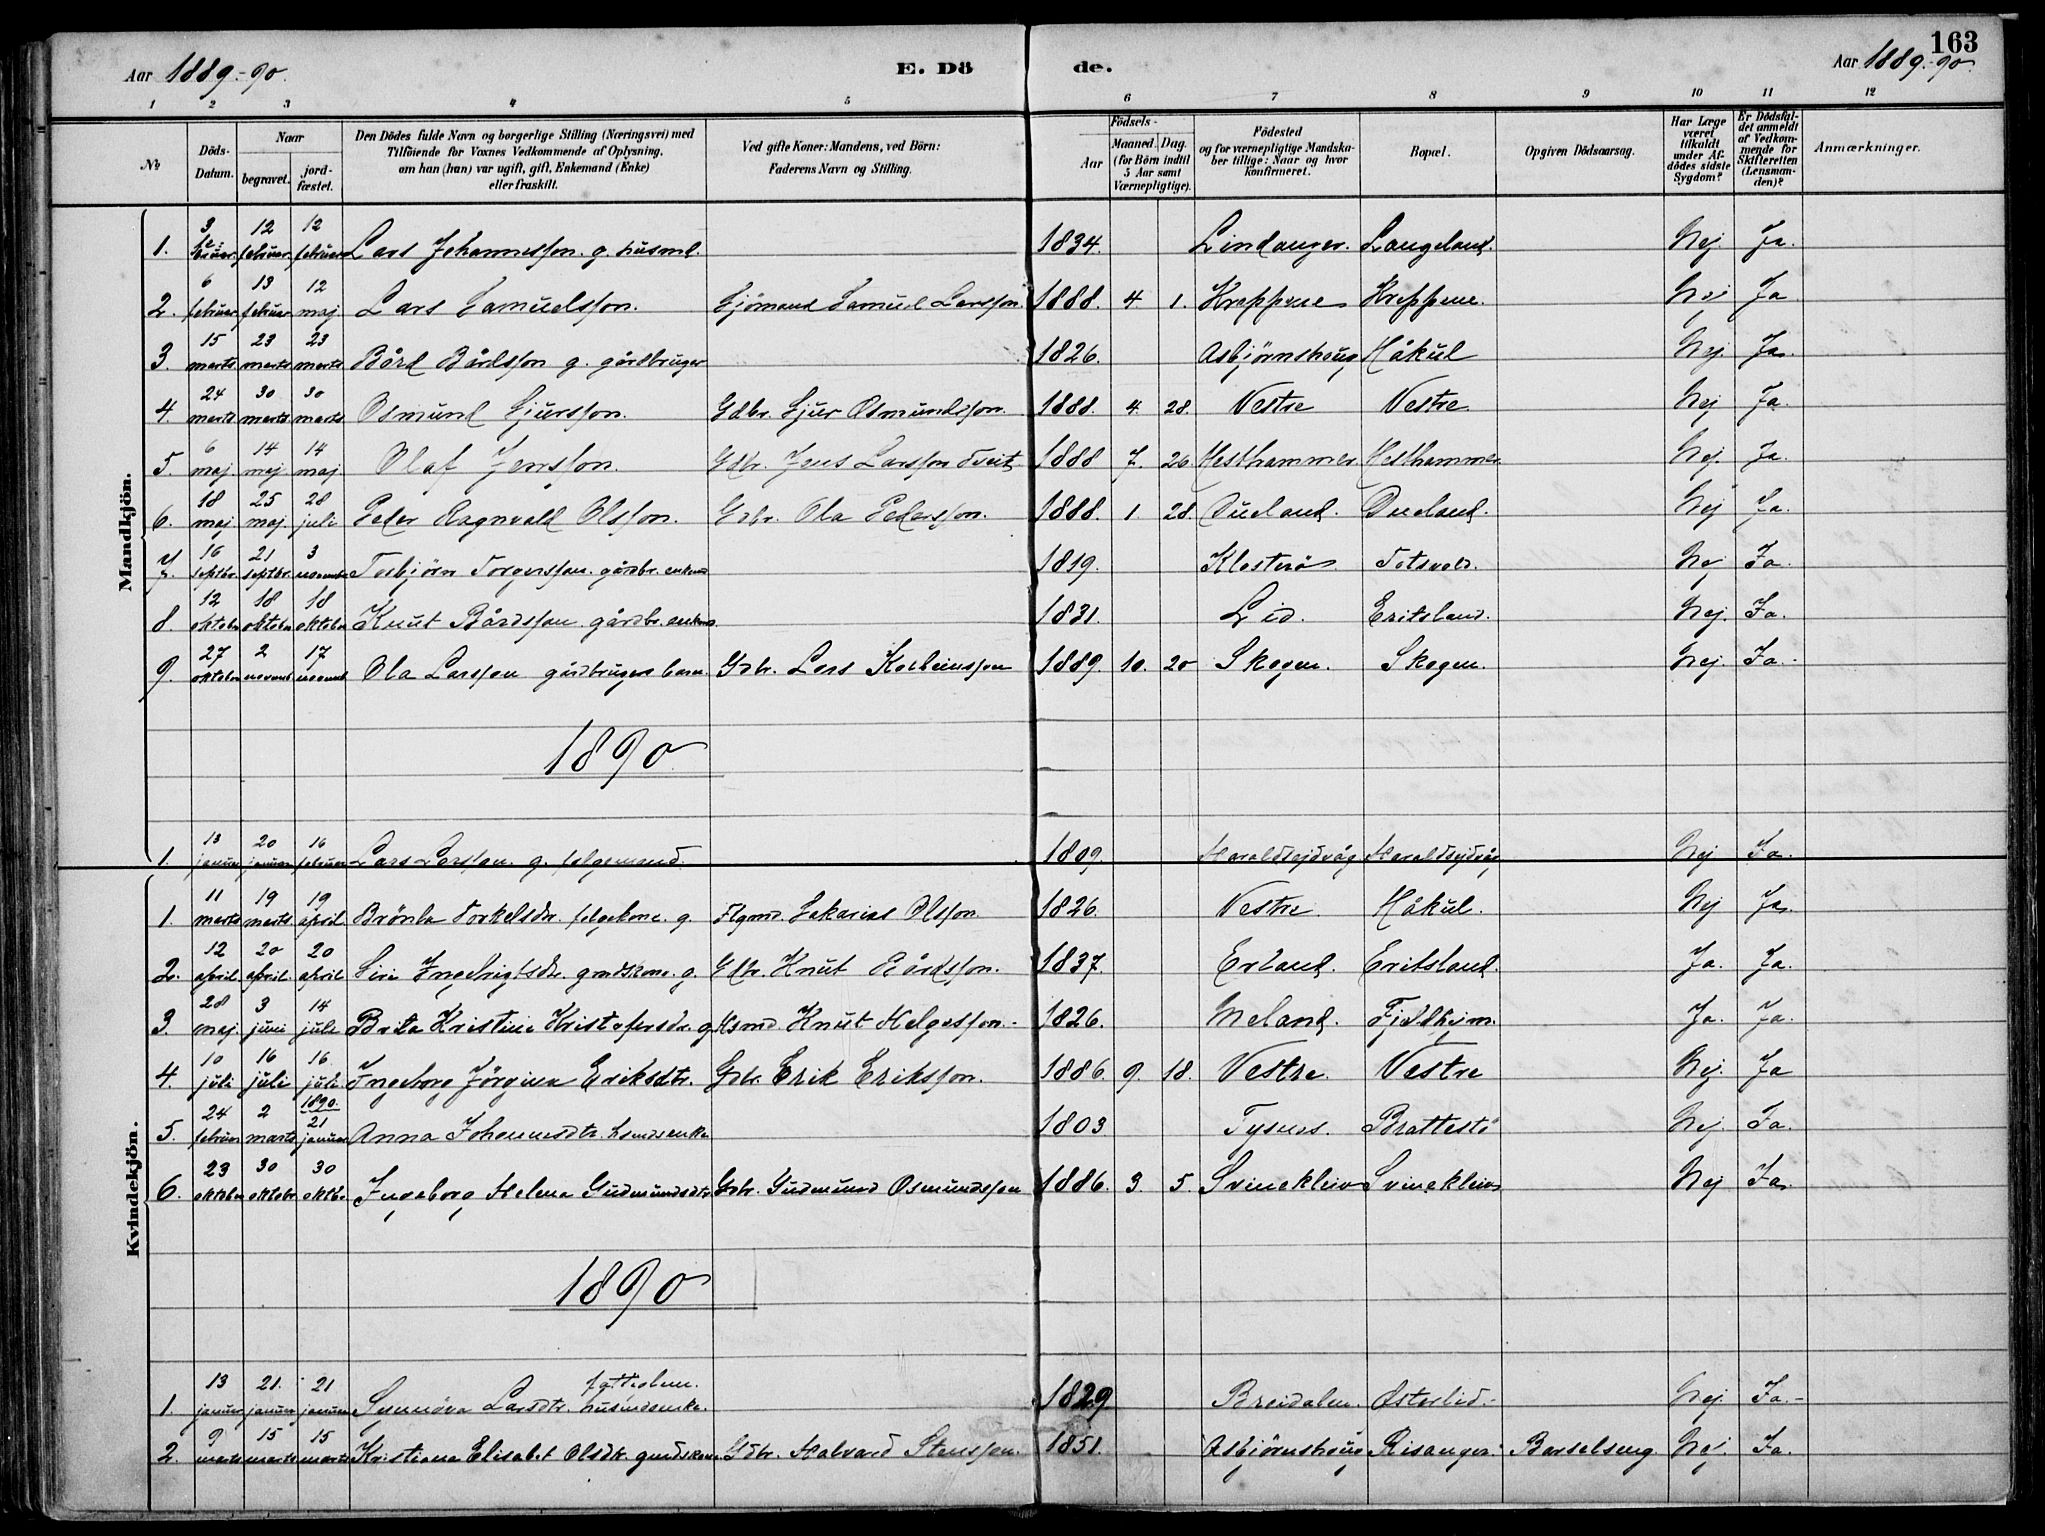 163
Aar 1889-90. E. Dö de. Aar 1889-90.
1 2 3 4 5 6 7 8 9 10 11 12
№ Döds-Datum. Naar begravet. jordfæstet. Den Dödes fulde Navn og borgerlige Stilling (Næringsvei) med Tilföiende for Voxnes Vedkommende af Oplysning. om han (hun) var ugift, gift, Enkemand (Enke) eller fraskilt. Ved gifte Koner: Mandens, ved Börn: Faderens Navn og Stilling. Födsels- Aar Maaned. Dag. (for Börn indtil 5 Aar samt Værnepligtige). Födested og for værnepligtige Mandskaber tillige: Naar og hvor konfirmeret. Bopæl. Opgiven Dödsaarsag. Har Læge været tilkaldt under Afdödes sidste Sygdom? Er Dödsfaldet anmeldt af Vedkommende for Skifteretten (Lensmanden)? Anmærkninger.
Mandkjön.
1. 3 februar 12 februar 12 februar Lars Johannesson. g. husmd. 1834. Lindanger. Langeland. Nej Ja.
2. 6 februar 13 februar 12 maj Lars Samuelsson. Sjömand Samuel Larsson 1888. 4. 1. Kreppene Kreppene. Nej Ja
3. 15 marts 23 marts 23 marts Bård Bårdsson g. gårdbruger 1826. Asbjørnshoug Håkul Nej. Ja.
4. 24 marts 30 marts 30 marts Osmund Sjursson. Gdbr. Sjur Osmundsson. 1888. 4. 28. Vestre Vestre Nej Ja.
5. 6 maj. 14 maj 14 maj Olaf Jensson. Gdbr. Jens Larsson Tveit 1888 7. 26 Hesthammer Hesthammer Nej. Ja.
6. 18 maj 25 maj. 28 juli Peder Ragnvald Olsson. Gdbr. Ola Pedersson. 1888. 1. 28. Dueland. Dueland. Nej Ja.
7. 16 septbr. 21 septbr. 3 novembr Torbjörn Torgersson. gårdbr. enkmd 1819. Klosterö Totsvold. Nej Ja.
8. 12 oktober 18 oktober 18 oktober Knut Bårdsson gårdbr. enkmd 1831. Lid. Eritsland. Nej. Ja.
9. 27 oktober 2 novemb 17 novemb Ola Larsson gårdbrugers barn. Gdbr. Lars Kolbeinsson 1889. 10. 20 Skogen. Skogen. Nej. Ja.
1890
1. 13 januar 20 januar 16 februar Lars Larsson. g. folgemand. 1809. Haraldsejdvåg Haraldsejdvåg Nej Ja.
Kvindekjön.
1. 11 marts 19 marts. 19 april Brönla Torkelsdr. folgekone. g. Flgmd. Sakarias Olsson 1826. Vestre Håkul. Nej Ja.
2. 12 april. 20 april 20 april Siri Ingebrigtsdr. grdskone. g. Gdbr. Knut Bårdsson. 1837. Erland. Eritsland. Ja. Ja.
3. 28 maj. 3 juni 14 juli Brita Kristine Kristofersdr. g. Hsmd. Knut Helgesson. 1826. Meland. Fjeldhejm. Ja. Ja.
4. 10 juli 16 juli 16 juli Ingeborg Jörgina Eriksdtr. Gdbr. Erik Eriksson. 1886. 9. 18. Vestre. Vestre Nej. Ja
5. 24 februar 2 marts 1890. 21 januar Anna Johannesdtr. hsmdsenke 1803 Tysnes. Brattestö Nej. Ja.
6. 23 oktober 30 oktobr. 30 oktbr. Ingeborg Helena Gudmundsdtr. Gdbr. Gudmund Osmundsson 1886. 3. 5. Svinekleiv Svinekleiv Nej Ja.
1890
1. 13 januar 21. januar 21 januar Synnöva Larsdtr. husmdsenke. fattiglem. 1829 Breidalen. Østerlid. Nej. Ja.
2. 9 marts 15 marts 15 marts Kristiana Elisabet Olsdtr. grdskone Gdbr. Halvard Stensson. 1851. Asbjørnshoug Risanger. Barselseng Nej. Ja.